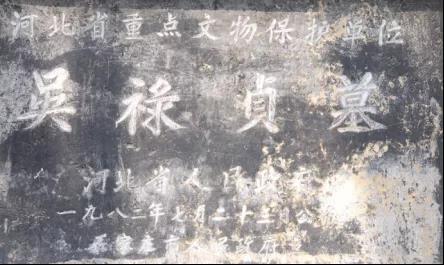 河北省重点文物保护单位
吳祿貞墓
河北省人民政府
一九八二年七月二十三日公布
石家庄市人民政府立